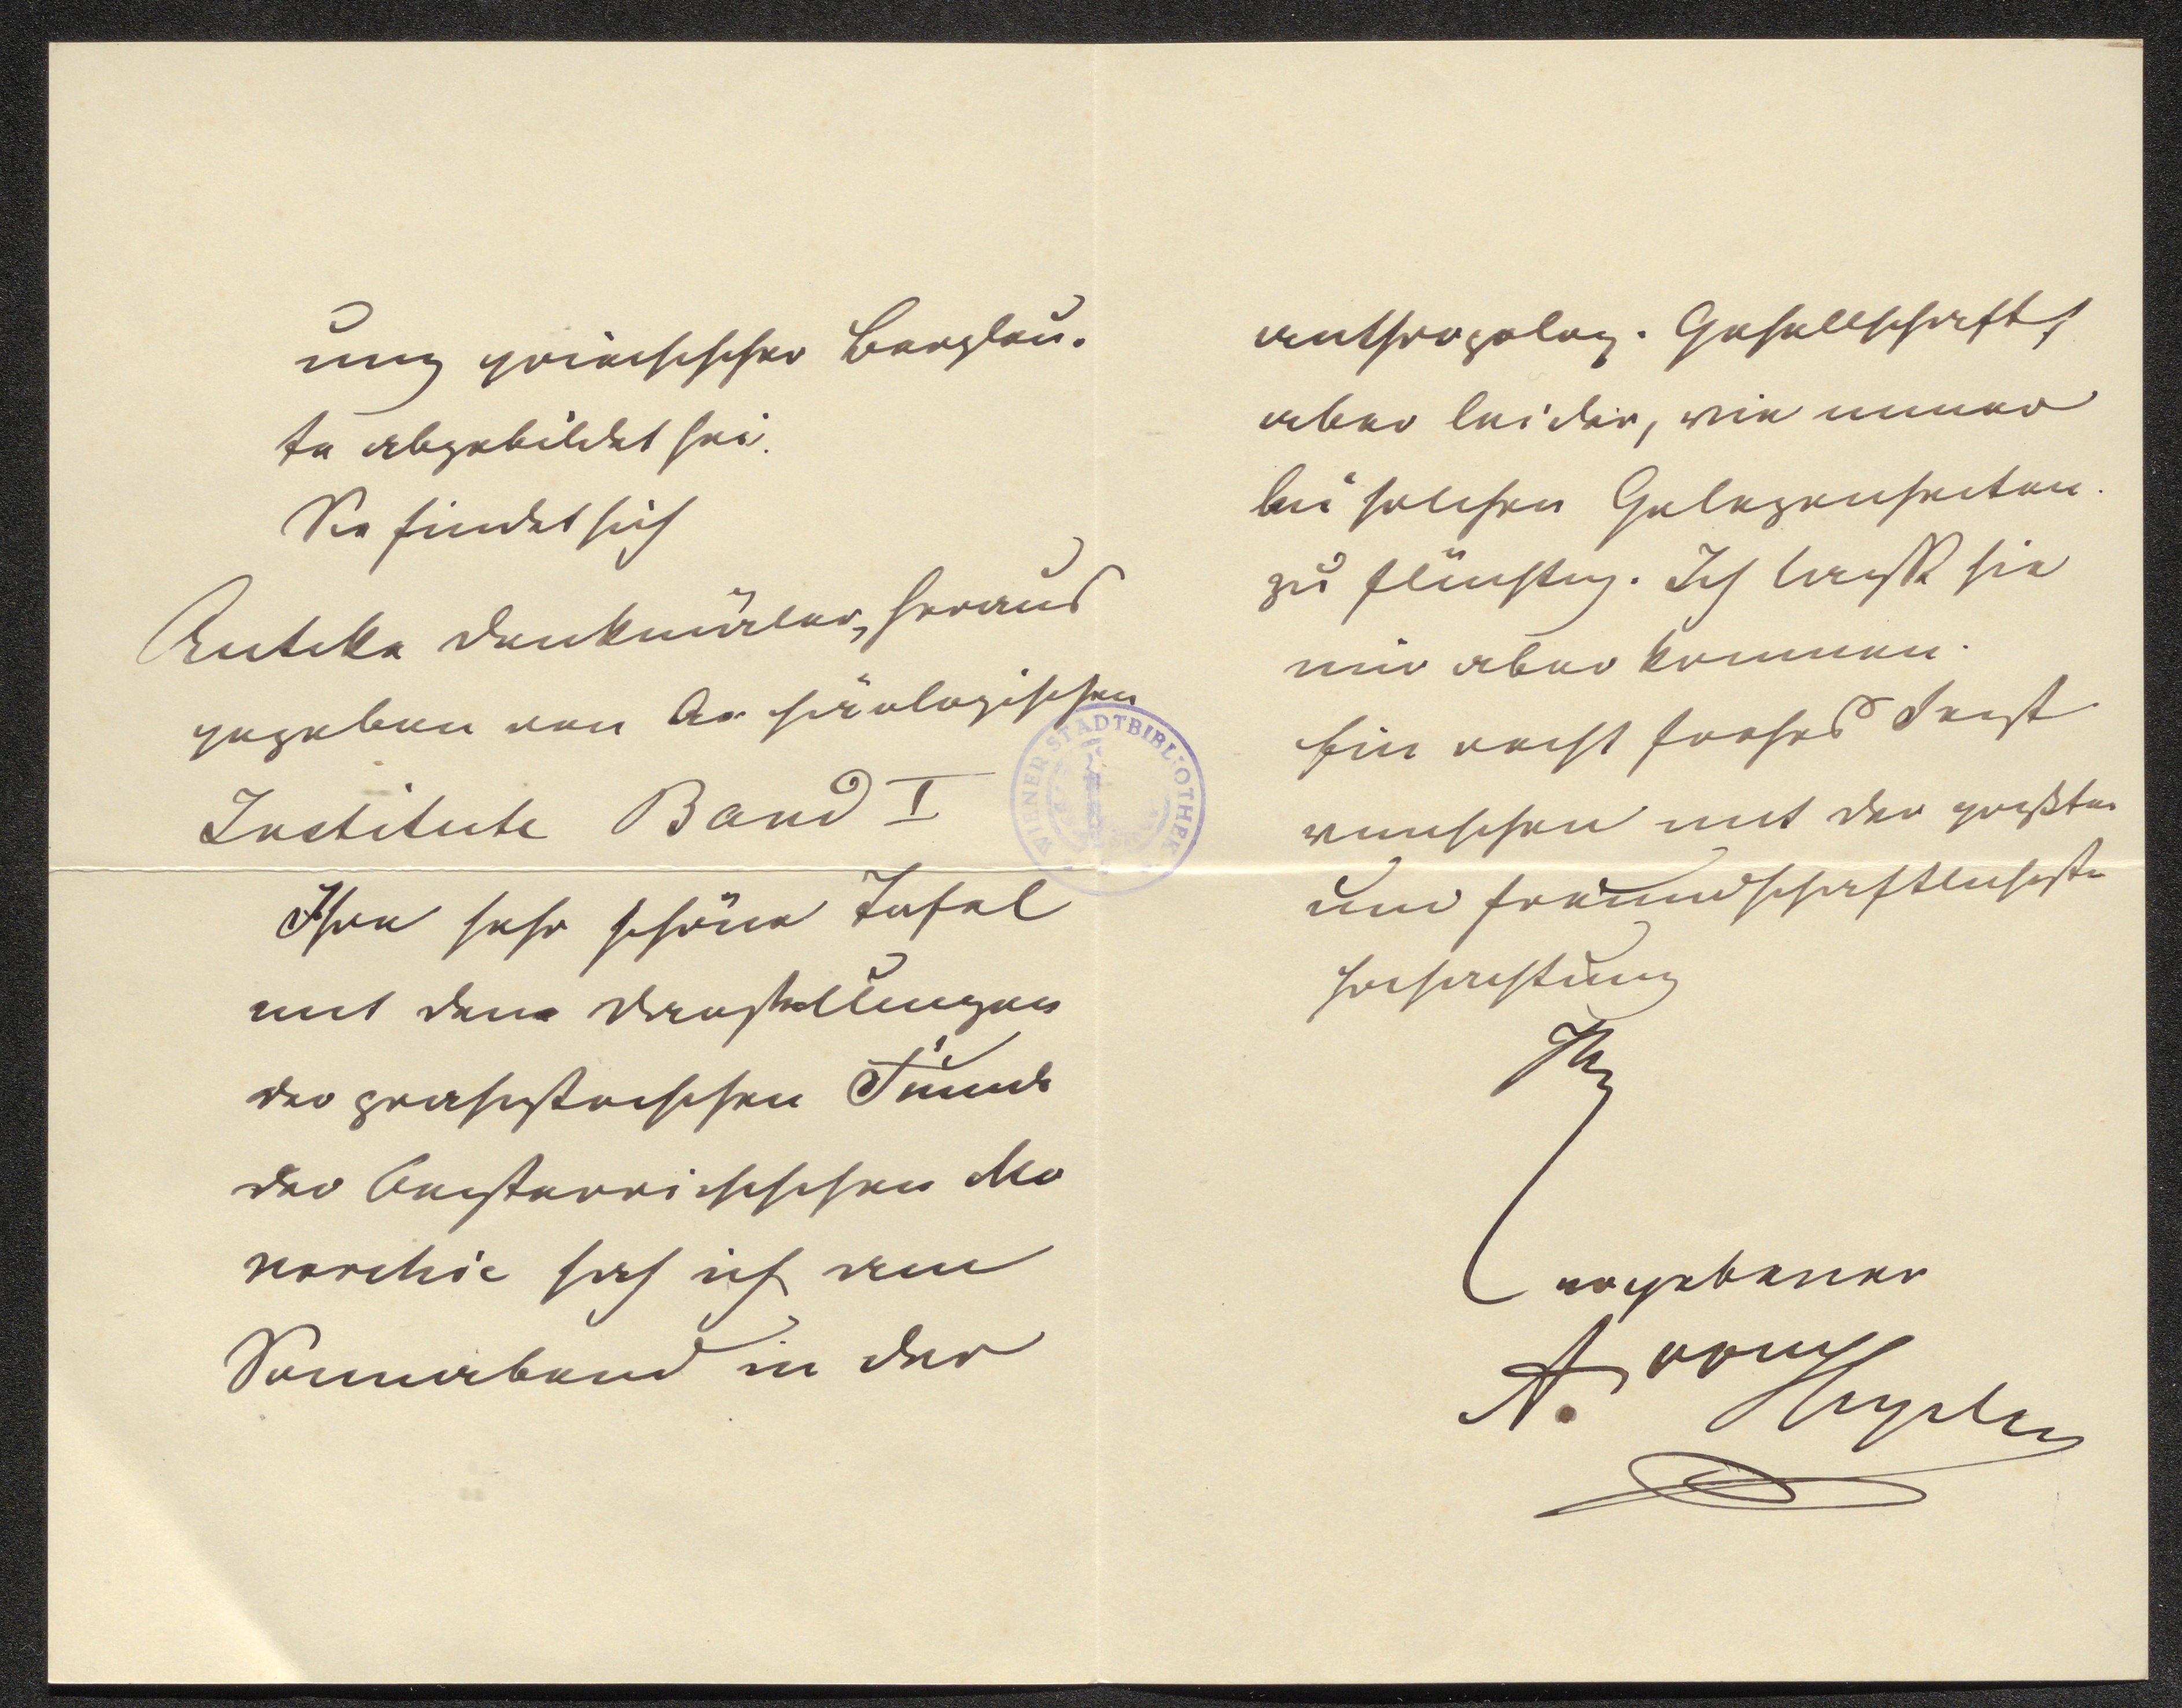 ung griechischer Bergleu-
te abgebildet sei.
Sie findet sich
Antike Denkmäler, heraus
gegeben von Archäologischen
Institute Band I
Ihre sehr schöne Tafel
mit den Darstellungen
der praehistorischen Funde
der Oesterreichischen Mo
narchie sah ich am
Sonnabend in der
anthropolog. Gesellschaft,
aber leider, wie immer
bei solchen Gelegenheiten.
zu flüchtig. Ich lasse sie
mir aber kommen.
Ein recht frohes Fest
wünschen mit der größten
und freundschaftlichsten
Hochachtung
Ihr
ergebener
A. von Heyden
WIENER STADTBIBLIOTHEK